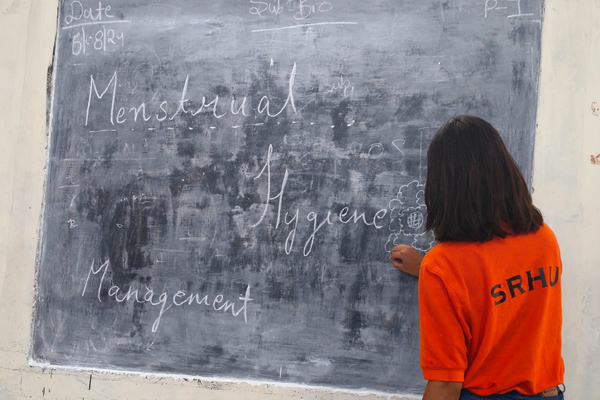 Date
Sub: Bio
P-I
6/-8/24
Menstrual
Hygiene
Management
SRHU